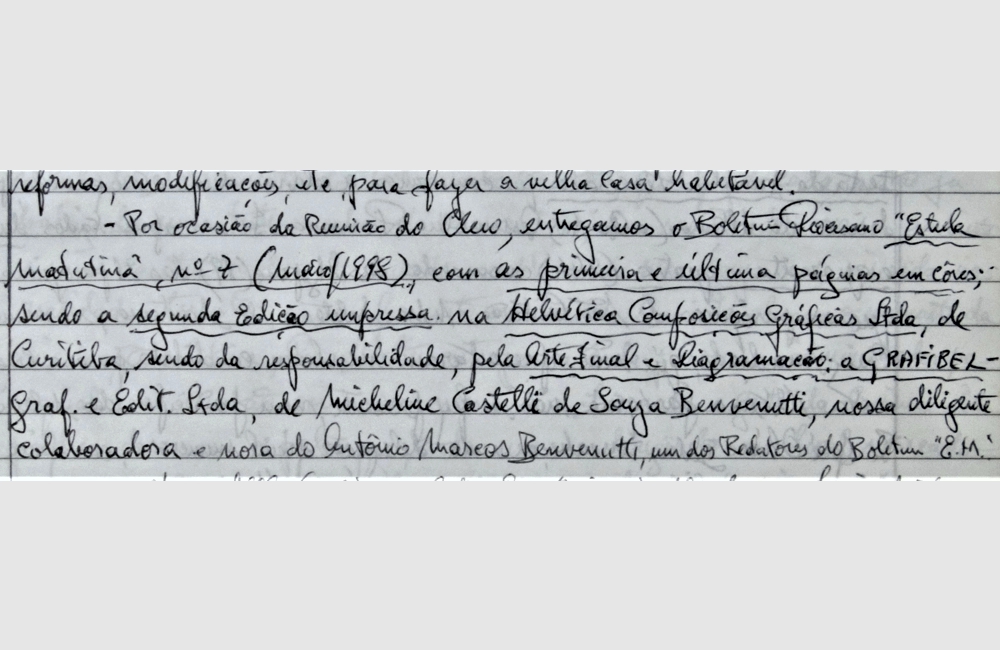 reformas, modificações, etc, para fazer a velha casa habitável.
- Por ocasião da Reunião do Clero, entregamos o Boletim Diocesano "Estrela
Matutina", nº 7 (Março/1998), com as primeira e última páginas em côres;
sendo a segunda Edição impressa na Helvética Composições Gráficas Ltda, de
Curitiba, sendo da responsabilidade, pela Arte final e Diagramação: a GRAFIBEL-
Graf. e Edit. Ltda, de Micheline Castelli de Souza Benvenutti, nossa diligente
colaboradora e nora do Antônio Marcos Benvenutti, um dos Redatores do Boletim "E.M."